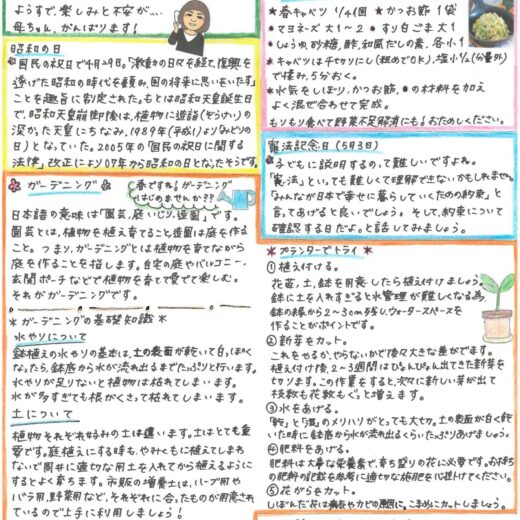 ようすで、楽しみと不安が‥‥
母ちゃん、がんばります!
昭和の日
国民の祝日で4月29日。「激動の日々を経て、復興を
遂げた昭和の時代を顧み、国の将来に思いをいたす」
ことを趣旨に制定された。もとは昭和天皇誕生日
で、昭和天皇崩御後は、植物に造詣(ぞうけい)の
深かった天皇にちなみ、1989年(平成1)より「みどりの
日」となっていた。2005年の「国民の祝日に関する
法律」改正により07年から昭和の日となったそうです。
ガーデニング
春ですね!ガーデニング
はじめませんか??
日本語の意味は「園芸、庭いじり、造園」です。
園芸とは、植物を植え育てること造園は庭を作る
こと。つまり、ガーデニングとは植物を育てながら
庭を作ることを指します。自宅の庭やバルコニー、
玄関ポーチなどで植物を育てて愛でて楽しむ。
それがガーデニングです。
*ガーデニングの基礎知識*
水やりについて
鉢植えの水やりの基本は、土の表面が乾いて白っぽく
なったら、鉢底から水が流れ出るまでたっぷりと行います。
水やりが足りないと植物は枯れてしまいます。
水が多すぎても根がくさって枯れてしまいます。
土について
植物それぞれ好みの土は違います。土はとても重
要です。庭植えにする時も、やみくもに植えてしまわ
ないで周囲に適切な用土を入れてから植えるように
するとよく育ちます。市販の培養土は、ハーブ用や
バラ用、野菜用など、それぞれに合ったものが用意されて
いるので上手に利用しましょう!
*春キャベツ 1/4個 *かつお節 1袋
*マヨネーズ 大1~2 *すり白ごま 大1
*しょうゆ、砂糖、酢、和風だしの素、各小1
*キャベツは千切りにし(粗めでOK)、塩小1/2(分量外)
で揉み、5分おく。
*水気をしぼり、かつお節、*の材料を加え
よく混ぜ合わせて完成。
もりもり食べて野菜不足解消にも!おためしください。
憲法記念日(5月3日)
子どもに説明するのって難しいですよね。
「憲法」といっても難しくて理解できないかもしれません。
「みんなが日本で幸せに暮らしていくための約束」と
言ってあげると良いでしょう。そして、約束について
確認する日だよ。と話してみましょう。
*プランターでトライ*
①植え付ける。
花苗、土、鉢を用意したら植え付けましょう。
鉢に土を入れすぎると水管理が難しくなる為、
鉢の縁から2~3cm残し、ウォータースペースを
作ることがポイントです。
②新芽をカット。
これをやるか、やらないかで後々大きな差がでます。
植え付け後、2~3週間はぴょんぴょん出てきた新芽を
切ります。この作業をすると、次々に新しい芽が出て
枝数も花数もぐっと増えます。
③水をあげる。
「乾」と「湿」のメリハリがとっても大切。土の表面が白く乾
いた時に鉢底から水が流れ出るくらいたっぷりあげましょう。
④肥料をあげる。
肥料は大事な栄養素で、育ち盛りの花に必要です。お持ち
の肥料の記載を参考に適切な施肥を心掛けてください。
⑤花がらをカット。
しぼんだ花は病気やカビの原因に。こまめにカットしましょう。